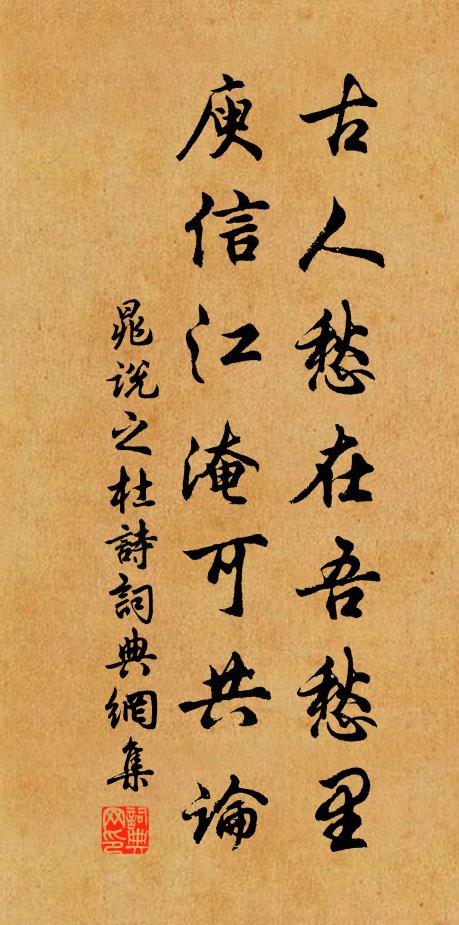 古人愁在吾愁里
庾信江淹可共論
晁說之杜詩詞典網集
詞典网印